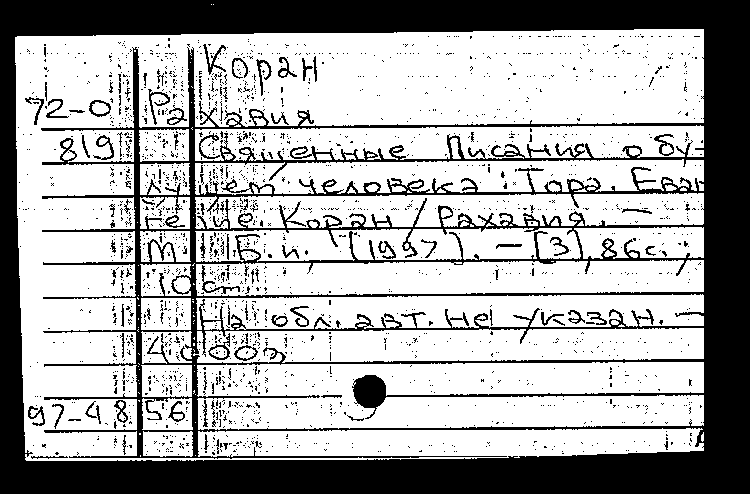 Коран
72-0 Рахавия
819 Священные Писания о бу-
дущем человека: Тора. Еван
гелие. Коран / Рахавия. —
М.: Б.и., [1997]. — [3], 86с.;
10см.
На обл. авт. не указан. —
40000э
97-4856